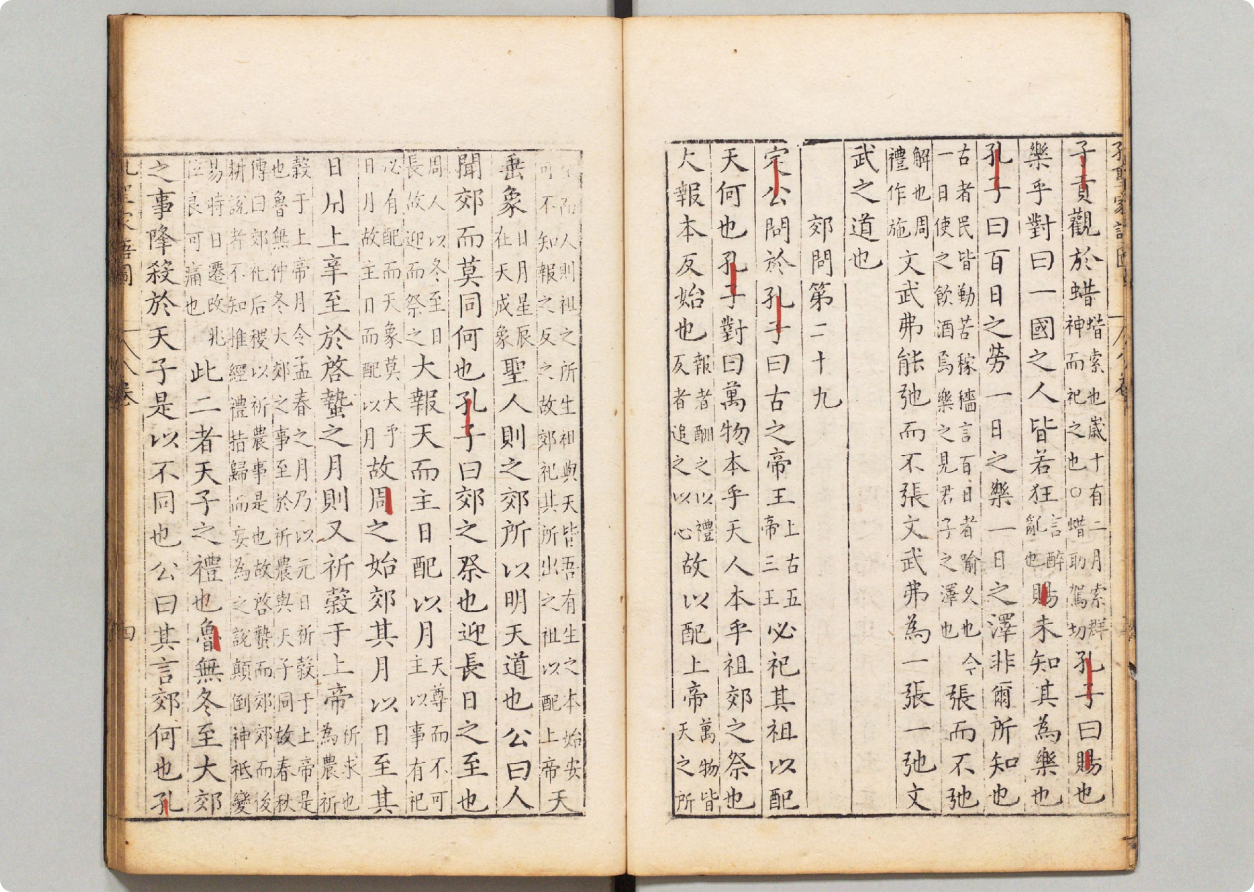 子貢觀於蜡蜡索也歲十有二月索群神而祀之也○蜡助駕切孔子曰賜也
樂乎對曰一國之人皆若狂言醉亂也賜未知其為樂也
孔子曰百日之勞一日之樂一日之澤非爾所知也
古者民皆勤苦稼穡言百日者喻久也今一日使之飲酒焉樂之見君子之澤也張而不弛
解也周禮作施文武弗能弛而不張文武弗為一張一弛文
武之道也
郊問第二十九
定公問於孔子曰古之帝王上古五帝三王必祀其祖以配
天何也孔子對曰萬物本乎天人本乎祖郊之祭也
大報本反始也報者酬之以禮反者追之以心故以配上帝萬物皆天之所
而人則祖之所生祖與天皆吾有生之本始安可不知報之反之故郊祀其所出之祖以配上帝天
垂象日月星辰在天成象聖人則之郊所以明天道也公曰人
聞郊而莫同何也孔子曰郊之祭也迎長日之至也
周人以冬至日長故迎而祭之大報天而主日配以月天尊而不可主以事有祀
必有配而天象莫大乎日月故主日而配以月故周之始郊其月以日至其
日用上辛至於啓蟄之月則又祈穀于上帝祈求也為農祈
穀于上帝月令孟春之月乃以元日祈穀于上帝是也魯無仲冬大郊之事至於祈農與天子同故春秋
傳曰郊祀后稷以祈農事是也故啓蟄而郊郊而後耕說者不知推經禮指歸而妄為之說顛倒神祇變
易時日遷改兆位良可痛也此二者天子之禮也魯無冬至大郊
之事降殺於天子是以不同也公曰其言郊何也孔
孔聖家語圖 八卷 四